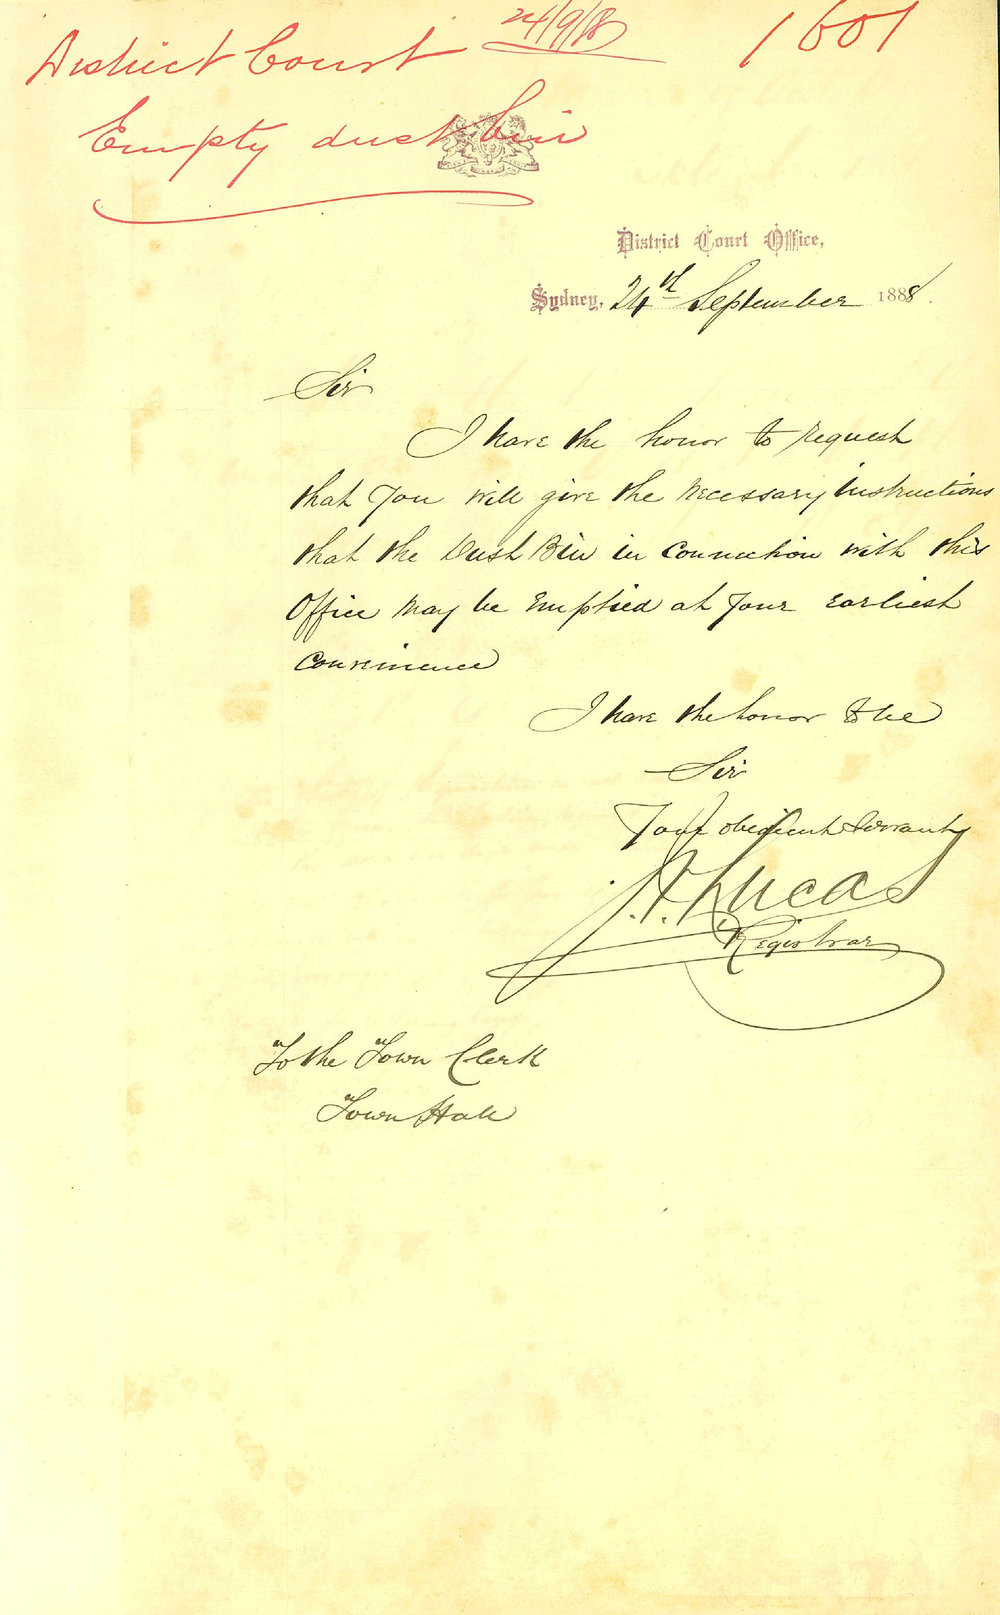 District Court 24/9/88 1601
Empty dust bin
District Court Office,
Sydney, 24th September 1888.
Sir
I have the honor to request
that you will give the necessary instructions
that the Dust Bin in connection with this
Office may be emptied at your earliest
convenience
I have the honor to be
Sir
Your obedient Servant
Lucas
Registrar
To the Town Clerk
Town Hall